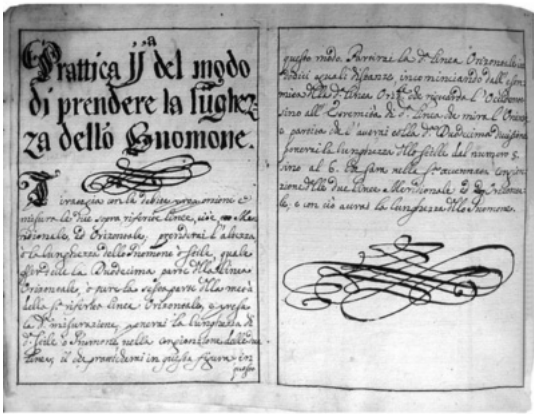 Prattica IIa del modo
di prendere la lughez
za dello Gnomone.
Tirata sia con la debita
misura le due sopra riferite linee, cioè Me-
ridionale, ed Orizontale, prenderai l'altezza,
o la lunghezza dello Gnomone o stile, quale
la Duodecima parte della linea
Orizontale, o pure la sesta parte della metà
della sa. riferita linea Orizontale, e presa
la da. misurazione, ponerai la lunghezza di
do. stile o Gnomone nella congionzione delle due
linee, il che prattiderai in questa figura in
questo
questo modo. Partirai la da. linea Orizontale in
dodici equali distanze, incominciando dall'estre-
mità della da. linea che riguarda l'Occidente
sino all'Estremità di da. linea che mira l'Oriente
e partita che l'averai colla da. Duodecima divisione
ponerai la lunghezza dello stile dal numero 5.
sino al 6. che sarà nella sa. accennata congiun-
zione delle due linee Meridionale ed Orizonta-
le, e con ciò averai la lunghezza dello Gnomone.